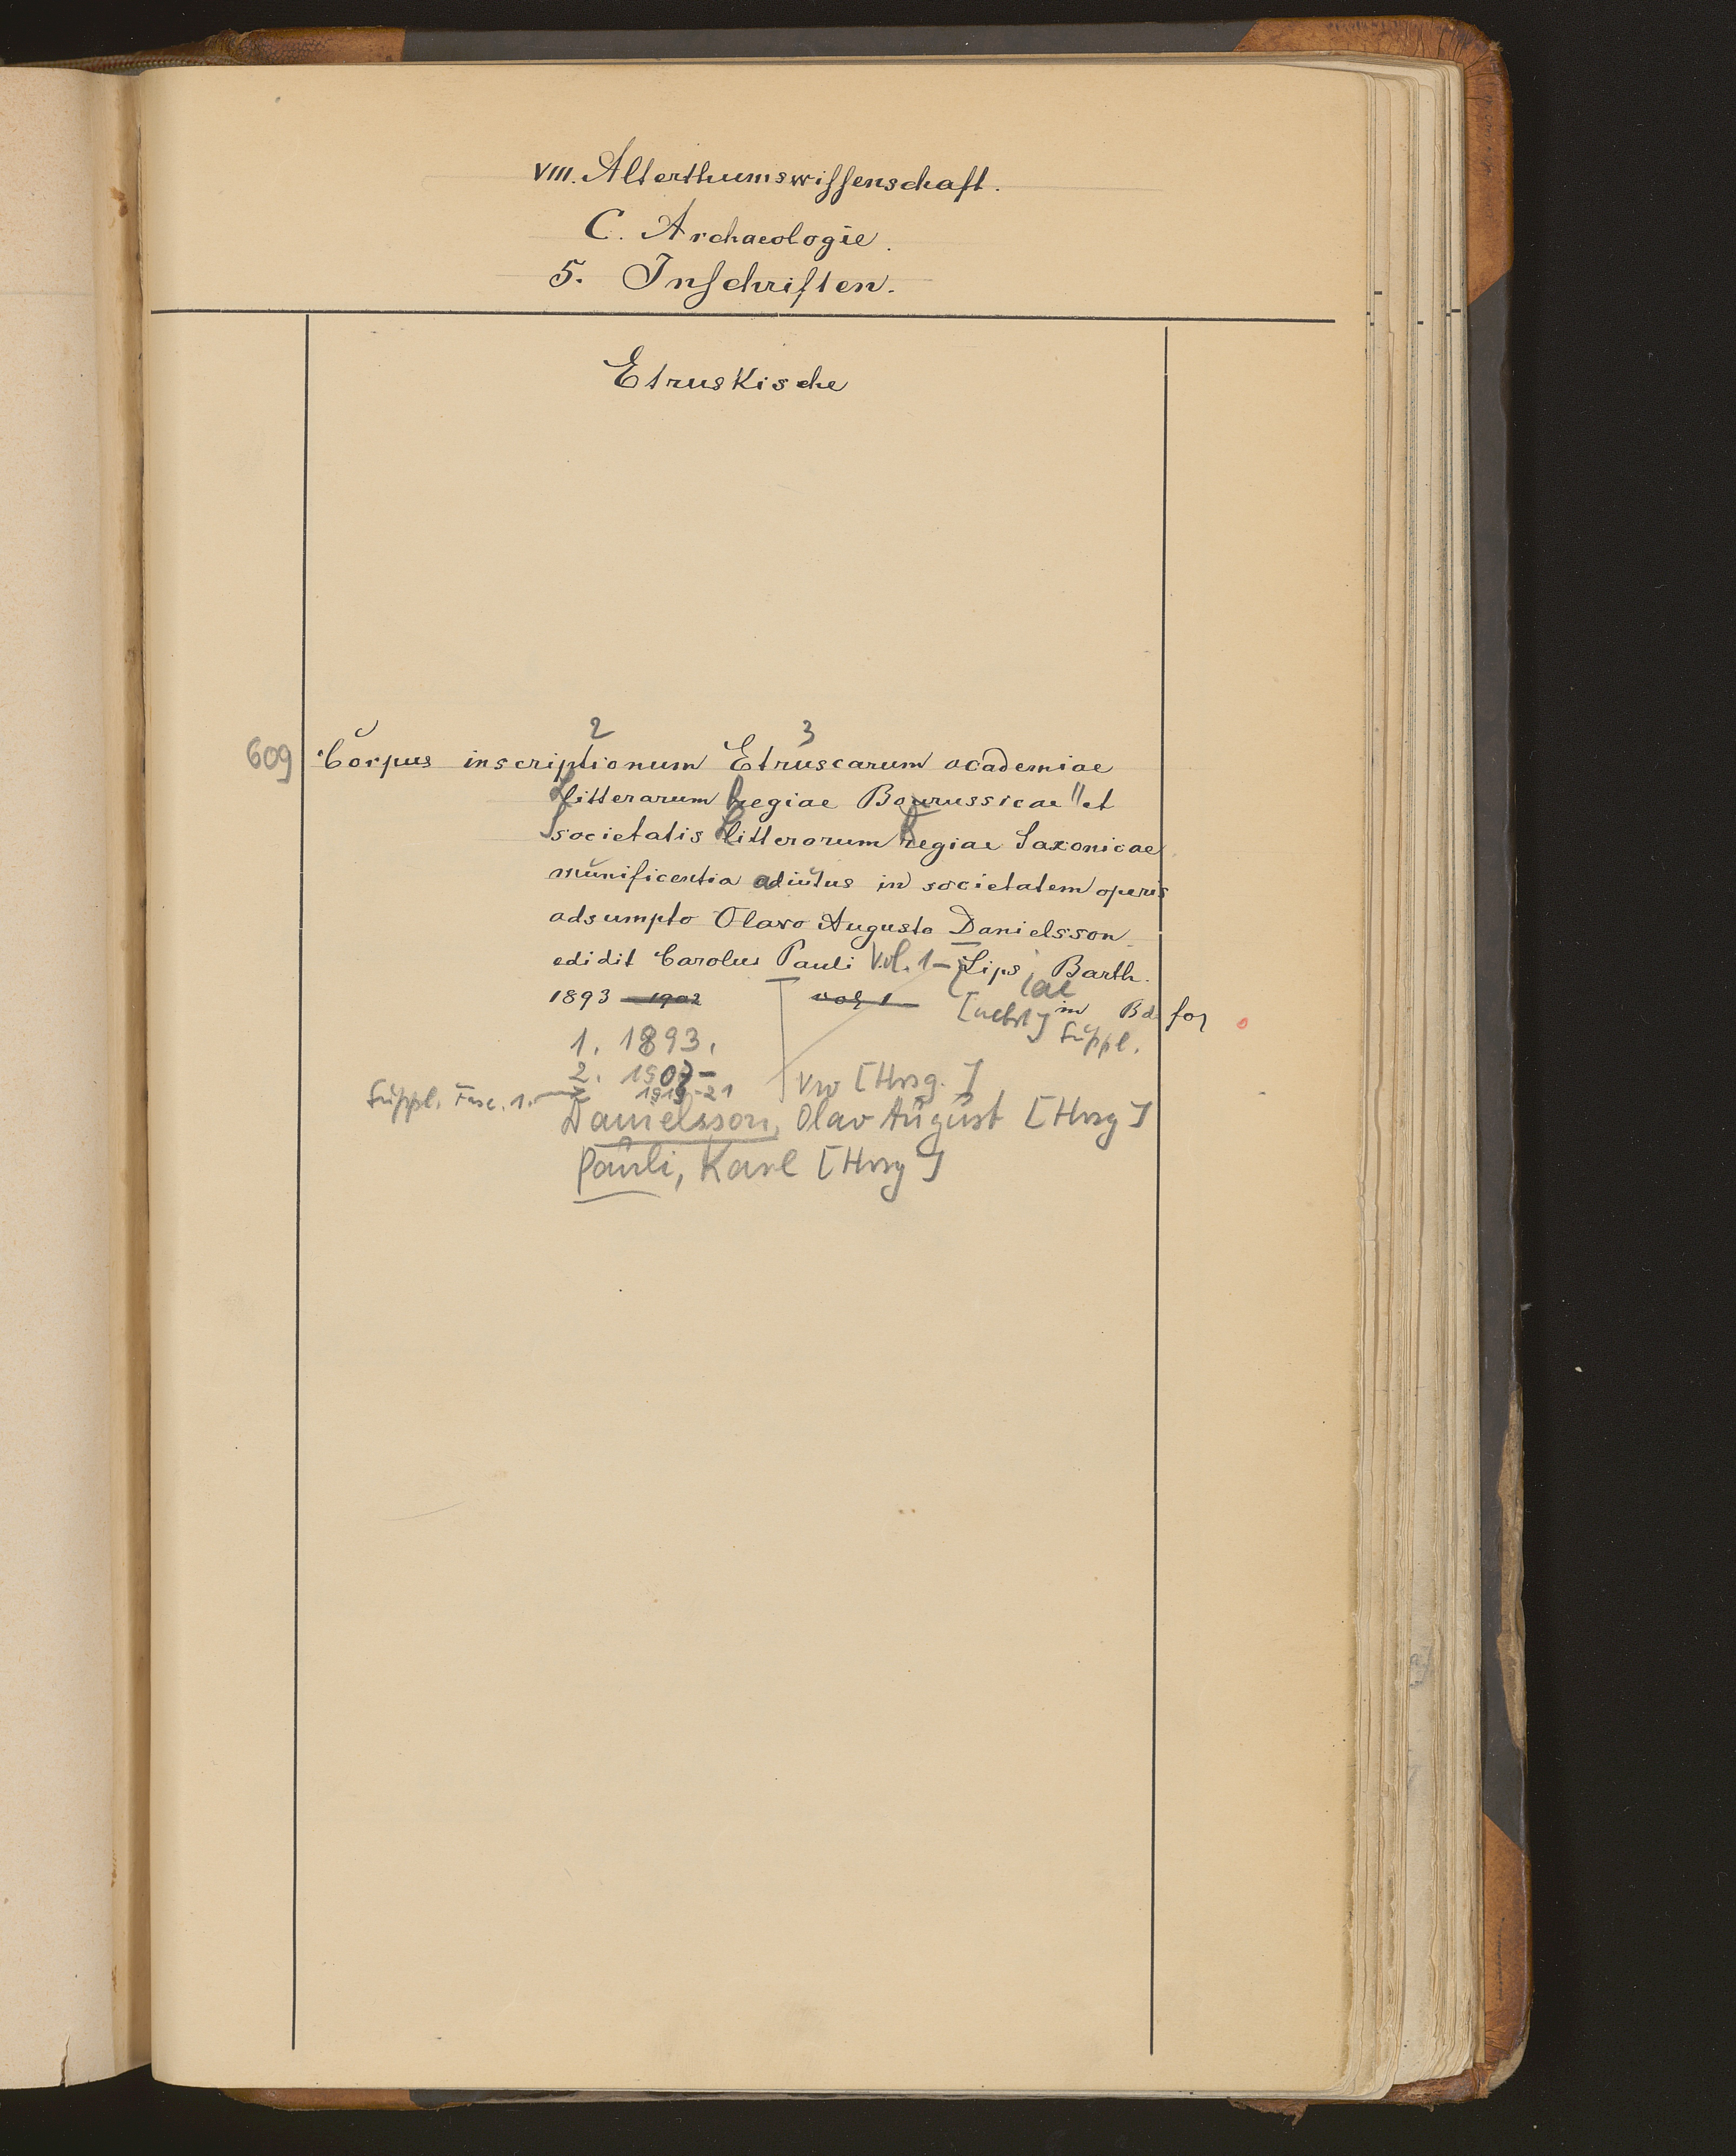 VIII. Alterthumswissenschaft.
C. Archaeologie.
5. Inschriften.
Etruskische
2 3
609 Corpus inscriptionum Etruscarum academiae
Litterarum Regiae Borussicae et
Societatis Litterarum Regiae Saxonicae
munificentia adiutus in societatem operis
adsumpto Olavo Augusto Danielsson
edidit Carolus Pauli Vol. 1- Lips, Barth.
iae
1893 - 1902 vol 1 [nebst] in Bd fol
Suppl.
1. 1893.
2. 1907-
Suppl. Fasc. 1. 1919-21 [Hrsg.]
Danielsson, Olav August [Hrsg]
Pauli, Karl [Hrsg]